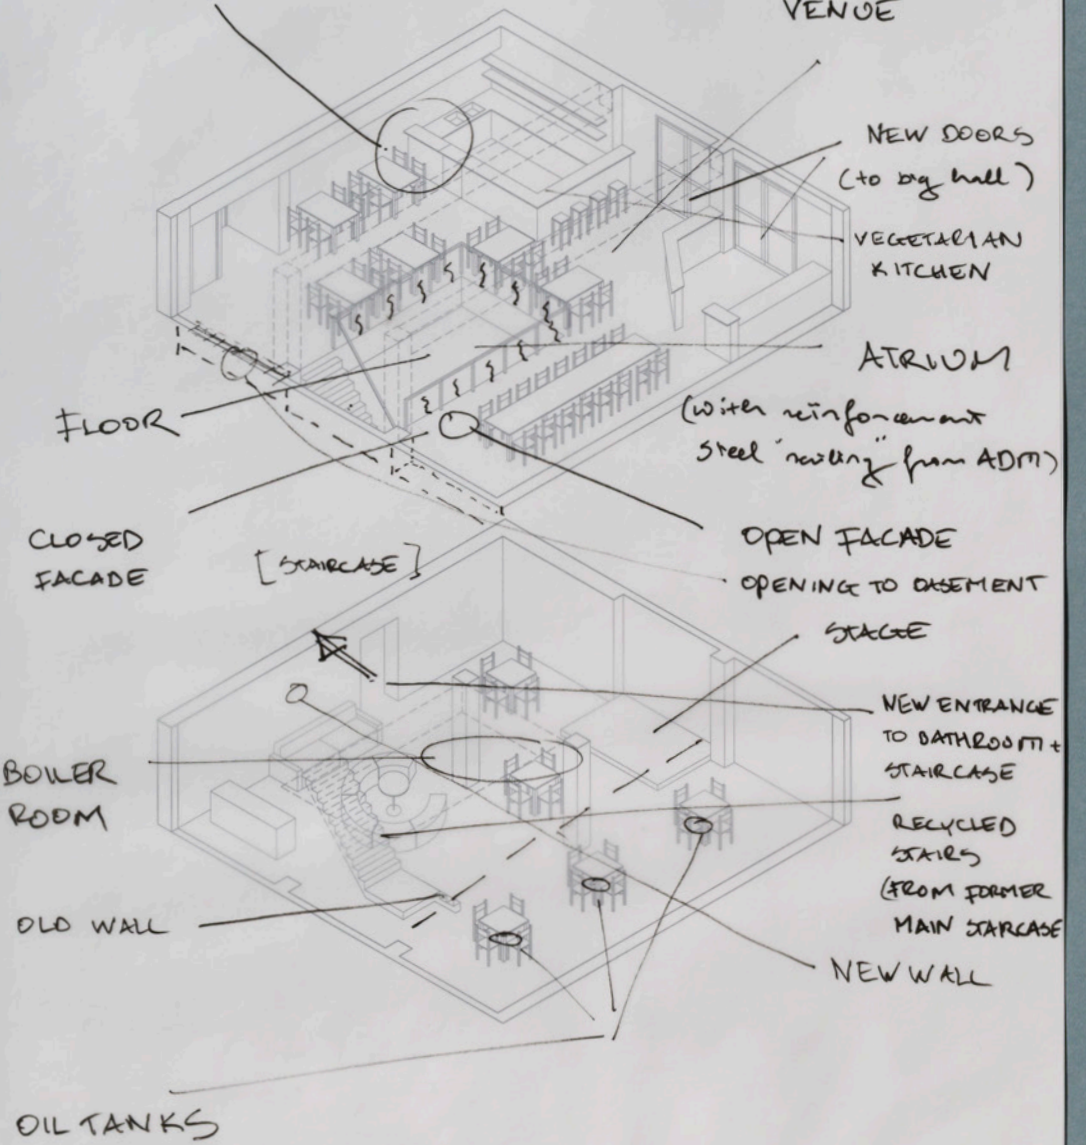 VENUE
NEW DOORS
(to big hall)
VEGETARIAN
KITCHEN
ATRIUM
(with reinforcement
steel "railing" from ADM)
FLOOR
CLOSED
FACADE
[STAIRCASE]
OPEN FACADE
OPENING TO BASEMENT
STAGE
NEW ENTRANCE
TO BATHROOM +
STAIRCASE
BOILER
ROOM
RECYCLED
STAIRS
(FROM FORMER
MAIN STAIRCASE
OLD WALL
NEW WALL
OIL TANKS